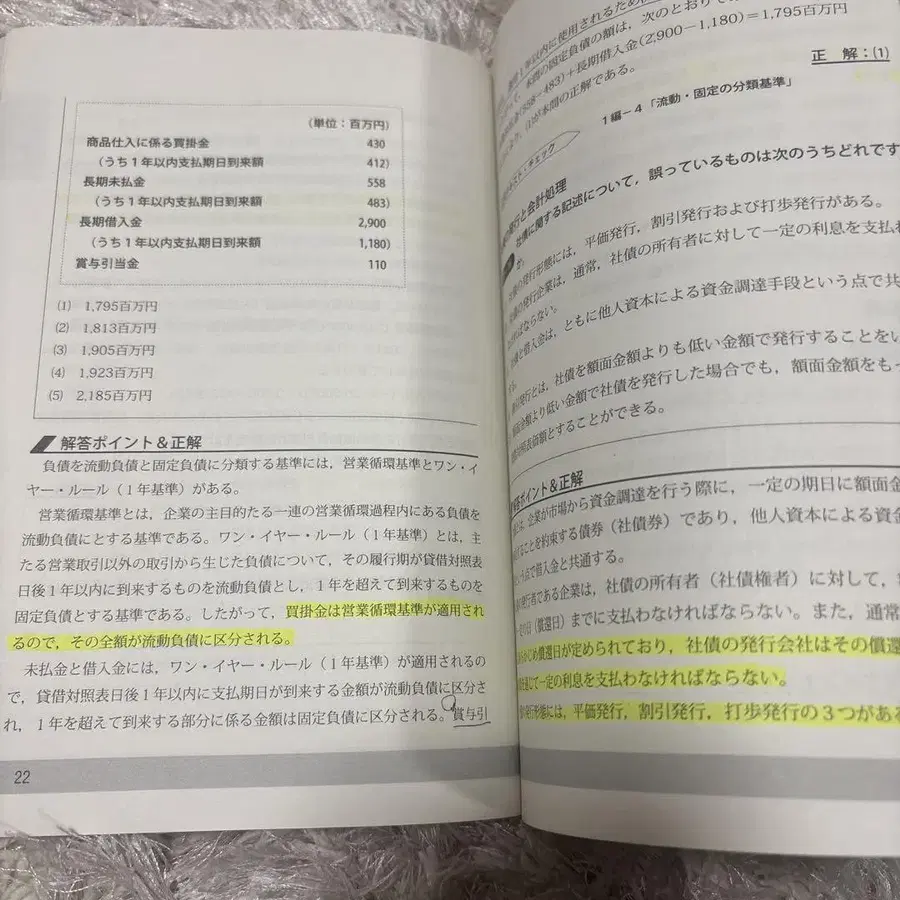 (単位：百万円)
商品仕入に係る買掛金 430
(うち１年以内支払期日到来額 412)
長期未払金 558
(うち１年以内支払期日到来額 483)
長期借入金 2,900
(うち１年以内支払期日到来額 1,180)
賞与引当金 110
(1) 1,795百万円
(2) 1,813百万円
(3) 1,905百万円
(4) 1,923百万円
(5) 2,185百万円
解答ポイント＆正解
負債を流動負債と固定負債に分類する基準には，営業循環基準とワン・イ
ヤー・ルール（１年基準）がある。
営業循環基準とは，企業の主目的たる一連の営業循環過程内にある負債を
流動負債にとする基準である。ワン・イヤー・ルール（１年基準）とは，主
たる営業取引以外の取引から生じた負債について，その履行期が貸借対照表
日後１年以内に到来するものを流動負債とし，１年を超えて到来するものを
固定負債とする基準である。したがって，買掛金は営業循環基準が適用され
るので，その全額が流動負債に区分される。
未払金と借入金には，ワン・イヤー・ルール（１年基準）が適用されるの
で，貸借対照表日後１年以内に支払期日が到来する金額が流動負債に区分さ
れ，１年を超えて到来する部分に係る金額は固定負債に区分される。賞与引
22
年以内に使用されるため
固定負債の額は，次のとおりで
558－483)＋長期借入金(2,900－1,180)＝1,795百万円
(1)が本問の正解である。
正 解：(1)
1編－4「流動・固定の分類基準」
チェック
発行と会計処理
社債に関する記述について，誤っているものは次のうちどれです
か。
の発行形態には，平価発行，割引発行および打歩発行がある。
の発行企業は，通常，社債の所有者に対して一定の利息を支払わ
ばならない。
と借入金は，ともに他人資本による資金調達手段という点で共
発行とは，社債を額面金額よりも低い金額で発行することをい
金額より低い金額で社債を発行した場合でも，額面金額をも
照表価額とすることができる。
解答ポイント＆正解
は，企業が市場から資金調達を行う際に，一定の期日に額面金
ことを約束する債券（社債券）であり，他人資本による資金
いう点で借入金と共通する。
発行者である企業は，社債の所有者（社債権者）に対して，
の日（償還日）までに支払わなければならない。また，通常
じめ償還日が定められており，社債の発行会社はその償還
じて一定の利息を支払わなければならない。
発行形態には，平価発行，割引発行，打歩発行の３つがある